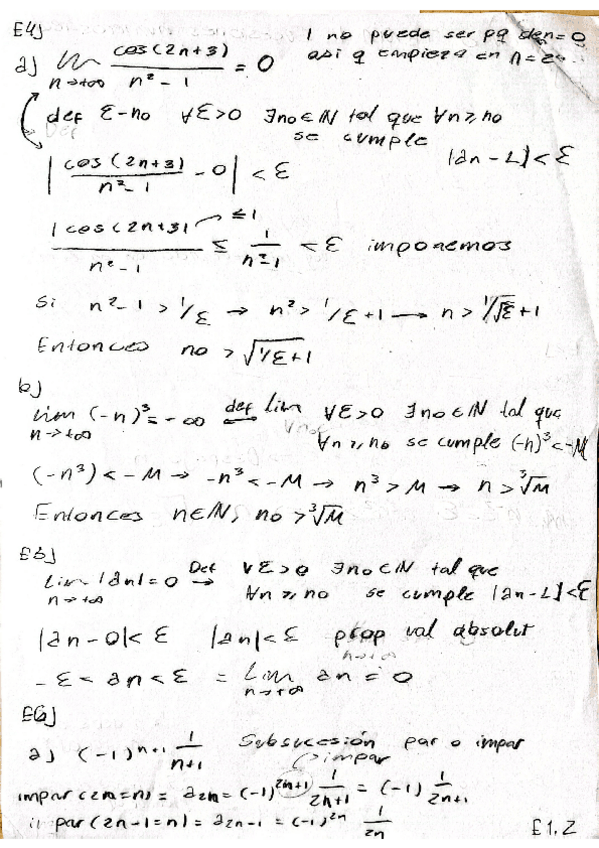 E4)
1 no puede ser pq den=0
asi q empieza en n=2
a) lim n→+∞ cos(2n+3) / n²-1 = 0
def ε-no ∀ε>0 ∃no∈ℕ tal que ∀n≥no
se cumple
|an-L|<ε
| cos(2n+3) / n²-1 - 0 | < ε
|cos(2n+3)| / n²-1 ≤ 1 / n²-1 < ε imponemos
≤1
Si n²-1 > 1/ε → n² > 1/ε+1 → n > √1/ε+1
Entonces no > √1/ε+1
b)
lim n→+∞ (-n)³ = -∞ def lim ∀ε>0 ∃no∈ℕ tal que
∀n≥no se cumple (-n)³<-M
(-n³) < -M → -n³ < -M → n³ > M → n > ³√M
Entonces n∈ℕ, no > ³√M
E5)
lim n→+∞ |an| = 0 Def → ∀ε>0 ∃no∈ℕ tal que
∀n≥no se cumple |an-L|<ε
|an-0|<ε |an|<ε prop val absolut
-ε < an < ε = lim n→+∞ an = 0
E6)
a) (-1)ⁿ⁺¹ 1/n+1 Subsucesión par o impar
impar
impar (2n=n) = a2n = (-1)²ⁿ⁺¹ 1/2n+1 = (-1) 1/2n+1
par (2n-1=n) = a2n-1 = (-1)²ⁿ 1/2n
E1.2